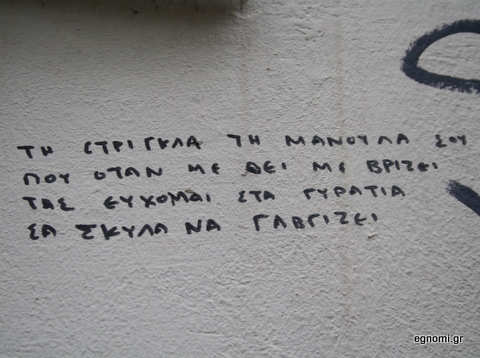 ΤΗ ΣΤΡΙΓΚΛΑ ΤΗ ΜΑΝΟΥΛΑ ΣΟΥ
ΠΟΥ ΟΤΑΝ ΜΕ ΔΕΙ ΜΕ ΒΡΙΖΕΙ
ΤΑΣ ΕΥΧΟΜΑΙ ΣΤΑ ΓΥΡΑΤΙΑ
ΣΑ ΣΚΥΛΑ ΝΑ ΓΑΒΓΙΖΕΙ
egnomi.gr